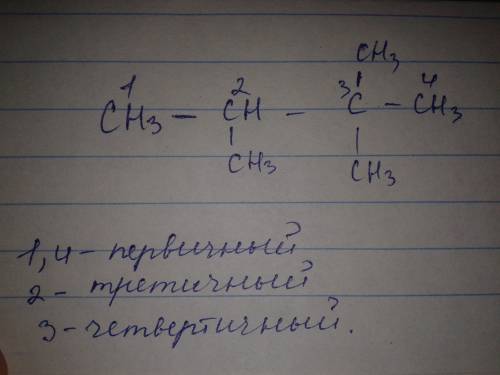 CH₃
1 2 3 4
CH₃ — CH — C — CH₃
CH₃ CH₃
1,4 - первичный
2 - третичный
3 - четвертичный.